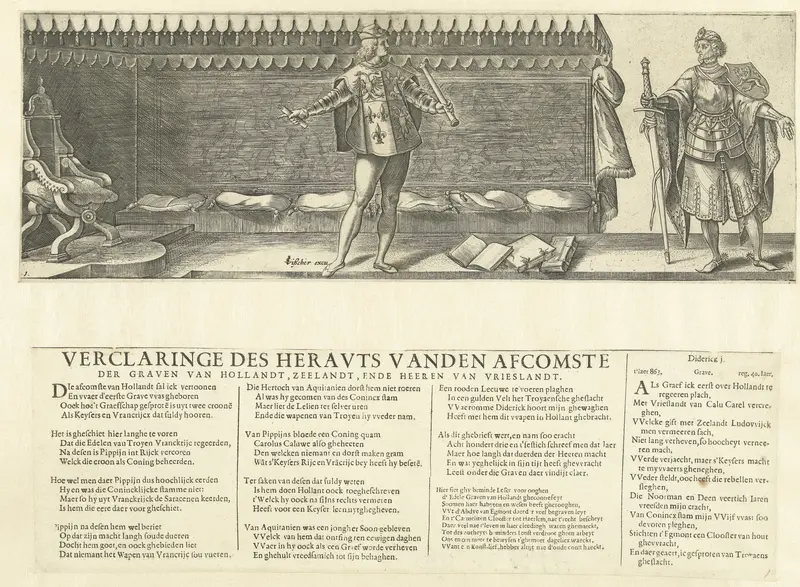 1.
Visscher excu.
VERCLARINGE DES HERAVTS VANDEN AFCOMSTE
DER GRAVEN VAN HOLLANDT, ZEELANDT, ENDE HEEREN VAN VRIESLANDT.
DIe afcomste van Hollandt sal ick vertoonen
En waer d'eerste Grave was gheboren
Oock hoe't Graefschap gesprotē is uyt twee croonē
Als Keysers en Vrancrijcx dat suldy hooren.
Het is gheschiet hier langhe te voren
Dat die Edelen van Troyen Vranctrijc regeerden,
Na desen is Pippijn int Rijck vercoren
Welck die croon als Coning beheerden.
Hoe wel men daer Pippijn dus hoochlijck eerden
Hy en was die Conincklijcke stamme niet:
Maer so hy uyt Vranckrijck de Saracenen keerden,
Is hem die eere daer voor gheschiet.
Pippijn na desen hem wel beriet
Op dat zijn macht langh soude dueren
Docht hem goet, en oock ghebieden liet
Dat niemant het Wapen van Vranctrijc sou vueren.
Die Hertoch van Aquitanien dorst hem niet roeren
Al was hy gecomen van des Conincx stam
Maer liet de Lelien ter selver uren
Ende die wapenen van Troyen hy weder nam.
Van Pippijns bloede een Coning quam
Carolus Caluwe also gheheeten
Welcken niemant en dorst maken gram
Wāt s'Keysers Rijc en Vrācrijc bey heeft hy besetē.
Ter saken van desen dat suldy weten
Is hem doen Hollant oock toegheschreven
t'Welck hy oock na sijns rechts vermeten
Heeft voor een Keyser leen uytghegheven.
Van Aquitanien was een jongher Soon gebleven
Welck van hem dat ontfing ten eewigen daghen
Waer in hy oock als een Graef worde verheven
En ghehult vreedsamich tot sijn behaghen.
Een rooden Leeuwe te voeren plaghen
In een gulden Velt het Troyaensche gheslacht
Waeromme Diderick hoort mijn ghewaghen
Heeft met hem dit wapen in Hollant ghebracht.
Als dit ghebrieft wert, en nam soo eracht
Acht hondert drie en t'sestich schreef men dat Iaer
Maer hoe langh dat duerden der Heeren macht
En wat yeghelijck in sijn tijt heeft ghevracht
Leest onder die Graven daer vindijt claer.
Hier siet ghy beminde Leser voor ooghen
d'Edele Graven van Hollandt
Soomen haer
VVt d'Abdye van Egmont daer d'r veel begraven leyt
En t'Carmeliten Clooster tot Haerlem,
Diderick j.
t'Iaer 863. Grave. reg. 40. Iaer,
ALs Graef ick eerst over Hollandt te
regeeren plach,
Met Vrieslandt van Calu Carel vercre-
ghen,
VVelcke gift met Zeelandt Ludovijck
men vermeeren sach,
Niet lang verheven, so hoocheyt vernee-
ren mach,
VVerde verjaecht, maer s'Keysers macht
te mywaerts gheneghen,
VVeder steld, oock heeft die rebellen ver-
sleghen,
Die Noorman en Deen veertich Iaren
vreesden mijn cracht,
Van Conincx stam mijn VVijf was: soo
devoten pleghen,
Stichten t'Egmont een Clooster van hout
ghevvracht,
En daer geaert, ic gesproten van Troyaens
gheslacht.